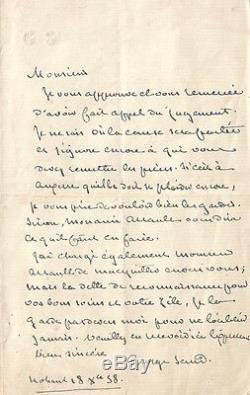 Monsieur
Je vous approuve et vous remercie
d'avoir fait appel du jugement.
Je ne sais où la cause sera portée
et j'ignore encore à qui vous
devez remettre les pièces. Si c'est à
qu'elles doivent se plaider encore,
je vous prie de vouloir bien les garder.
Sinon, Monsieur vous dira
ce qu'il faut en faire.
J'ai chargé également Monsieur
de m'acquitter envers vous;
mais la dette de reconnaissance pour
vos bons soins et votre zèle, je la
garde par devers moi pour ne l'oublier
jamais. Veuillez en recevoir ici l'expression
bien sincère
George Sand
Nohant 18 Xbre 58.